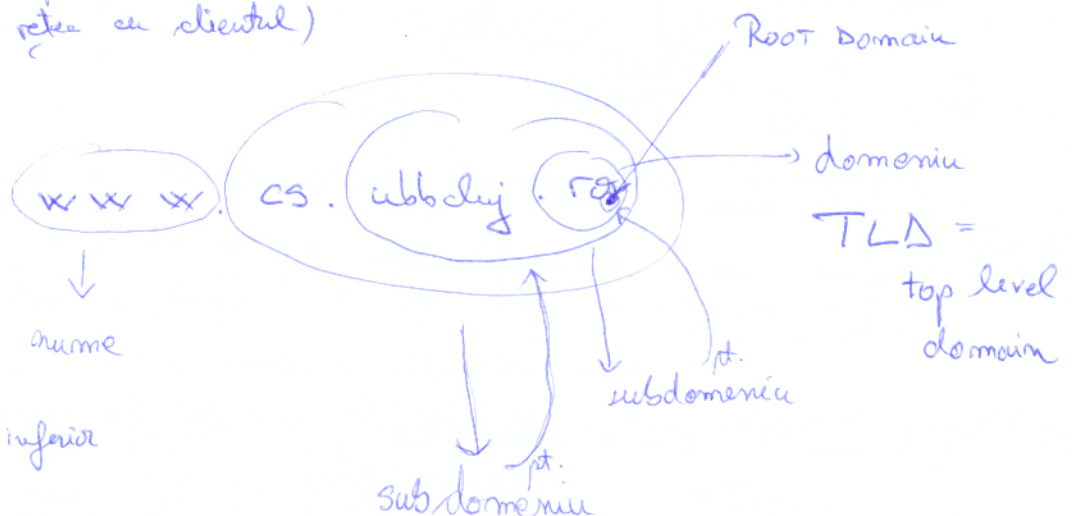 rețea cu clientul)
ROOT Domain
www.cs.ubbcluj.ro.
domeniu
TLD =
top level
domain
nume
pt.
subdomeniu
inferior
pt.
subdomeniu